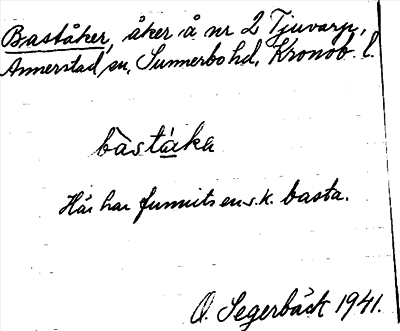 Baståker, åker å nr 2 Tjuvarp,
Annerstad sn, Sunnerbo hd, Kronob. l.
bàstáka
Här har funnits en s.k. basta.
O. Segerbäck 1941.